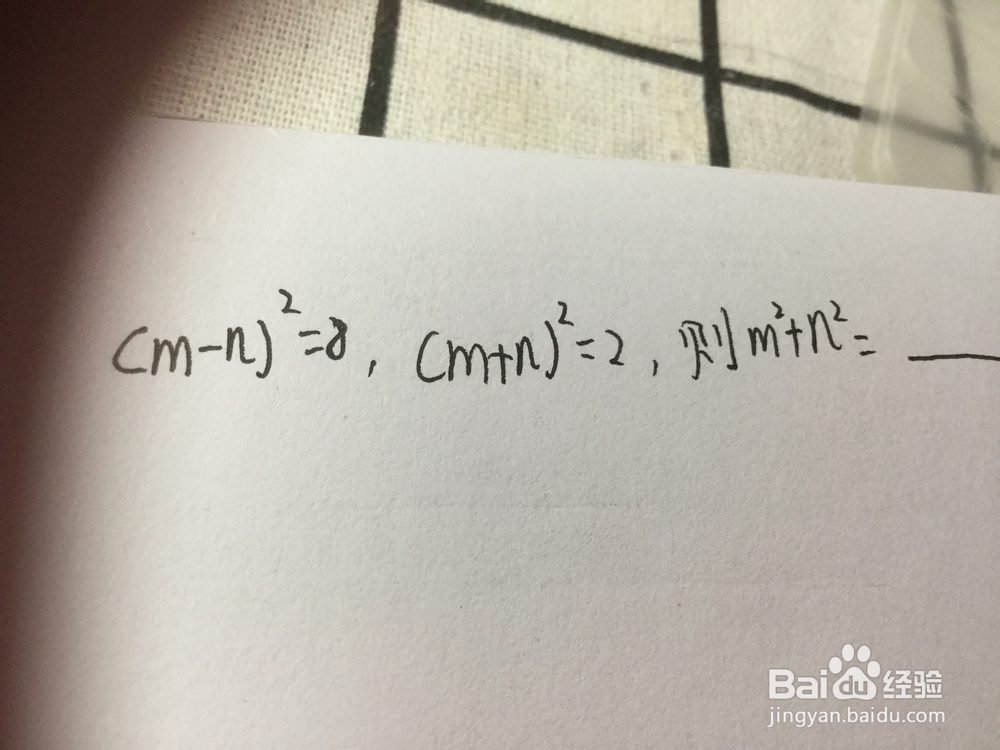 (m-n)²=8, (m+n)²=2, 则m²+n²=___
Baidu经验
jingyan.baidu.com